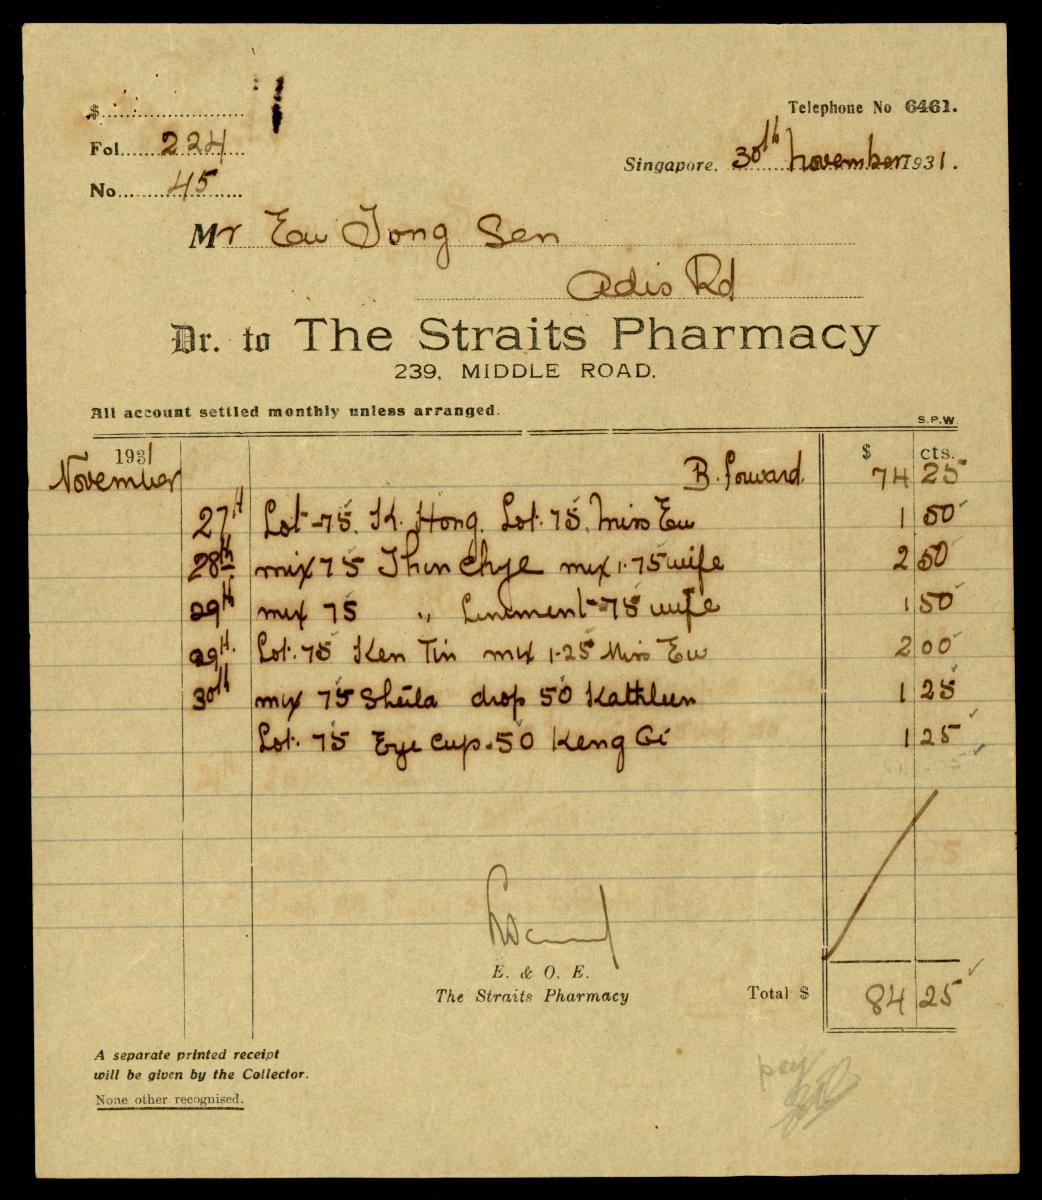 $
Telephone No 6461.
Fol. 224
Singapore, 30th November 1931.
No 45
Mr Eu Tong Sen
Adis Rd
Dr. to The Straits Pharmacy
239, MIDDLE ROAD.
All account settled monthly unless arranged.
S.P.W.
1931 $ cts.
November B. forward. 74 25
27th Lot -75. K. Hong. Lot. 75. Miss Eu 1 50
28th mix 75 Thin Chye mix 1.75 wife 2 50
29th mix 75 " Liniment -75 wife 1 50
29th. Lot. 75 Ken Tin mix 1-25 Miss Eu 2 00
30th mix 75 Sheila drop 50 Kathleen 1 25
Lot. 75 Eye cup .50 Keng Gi 1 25
E. & O. E.
The Straits Pharmacy
Total $ 84 25
A separate printed receipt
will be given by the Collector.
None other recognised.
pay